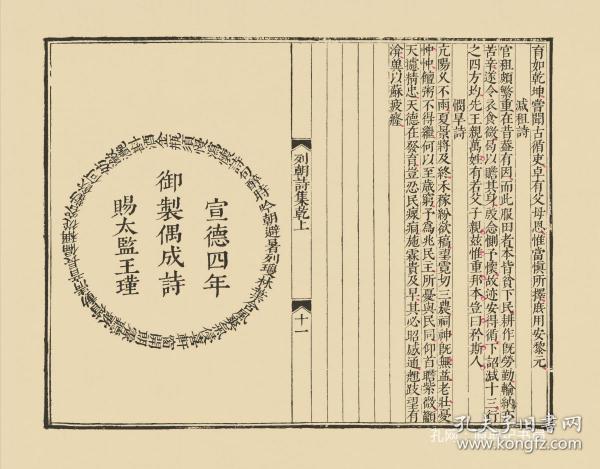 育如乾坤嘗聞古循吏卓有父母恩惟當愼所擇庶用安黎元
減租詩
官租頗繁重在昔蓋有因而此服田者本皆貧下民耕作旣勞勤輸納亦
苦辛遂令衣食微曷以贍其身殷念惻予懷故迹安得循下詔減十三行
之四方均先王親萬姓有若父子親茲惟重邦本豈曰矜斯人
憫旱詩
亢陽久不雨夏景將及終禾稼紛欲槁望霓切三農祠神旣無益老壯憂
忡忡饘粥不得繼何以至歲窮予爲兆民主所憂與民同仰首瞻紫微籲
天攄精忠天德在發育豈忍民瘝痌施霖貴及早其必昭感通翹跂望有
渰冀以蘇疲癃
列朝詩集乾上
十一
宣德四年
御製偶成詩
賜太監王瑾
孔夫子旧书网